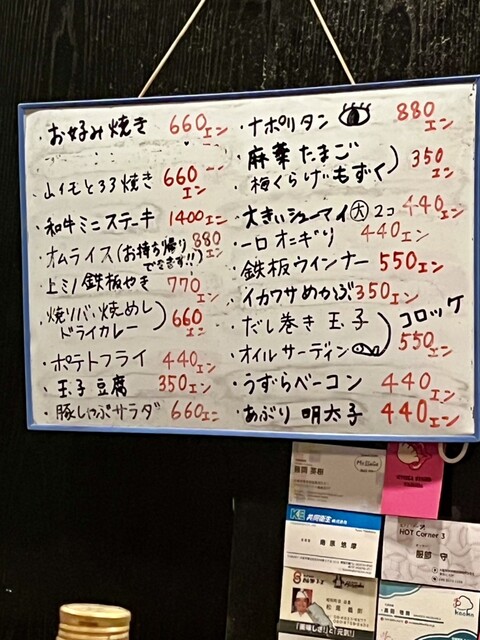 ・お好み焼き 660エン
・山イモとろろ焼き 660エン
・和牛ミニステーキ 1400エン
・オムライス(お持ち帰りできます!!) 880エン
・上ミノ鉄板やき 770エン
・焼ソバ・焼めし
ドライカレー 660エン
・ポテトフライ 440エン
・玉子豆腐 350エン
・豚しゃぶサラダ 660エン
・ナポリタン 880エン
・麻薬たまご
・梅くらげもずく 350エン
・大きいシューマイ大2コ 440エン
・一口オニギリ 440エン
・鉄板ウインナー 550エン
・イカワサめかぶ 350エン
・だし巻き玉子 コロッケ
・オイルサーディン 550エン
・うずらベーコン 440エン
・あぶり明太子 440エン
KE 共同衛生株式会社
HOT Corner 3
服部 守
松尾 義則
"美味しさ!"と"元気!"